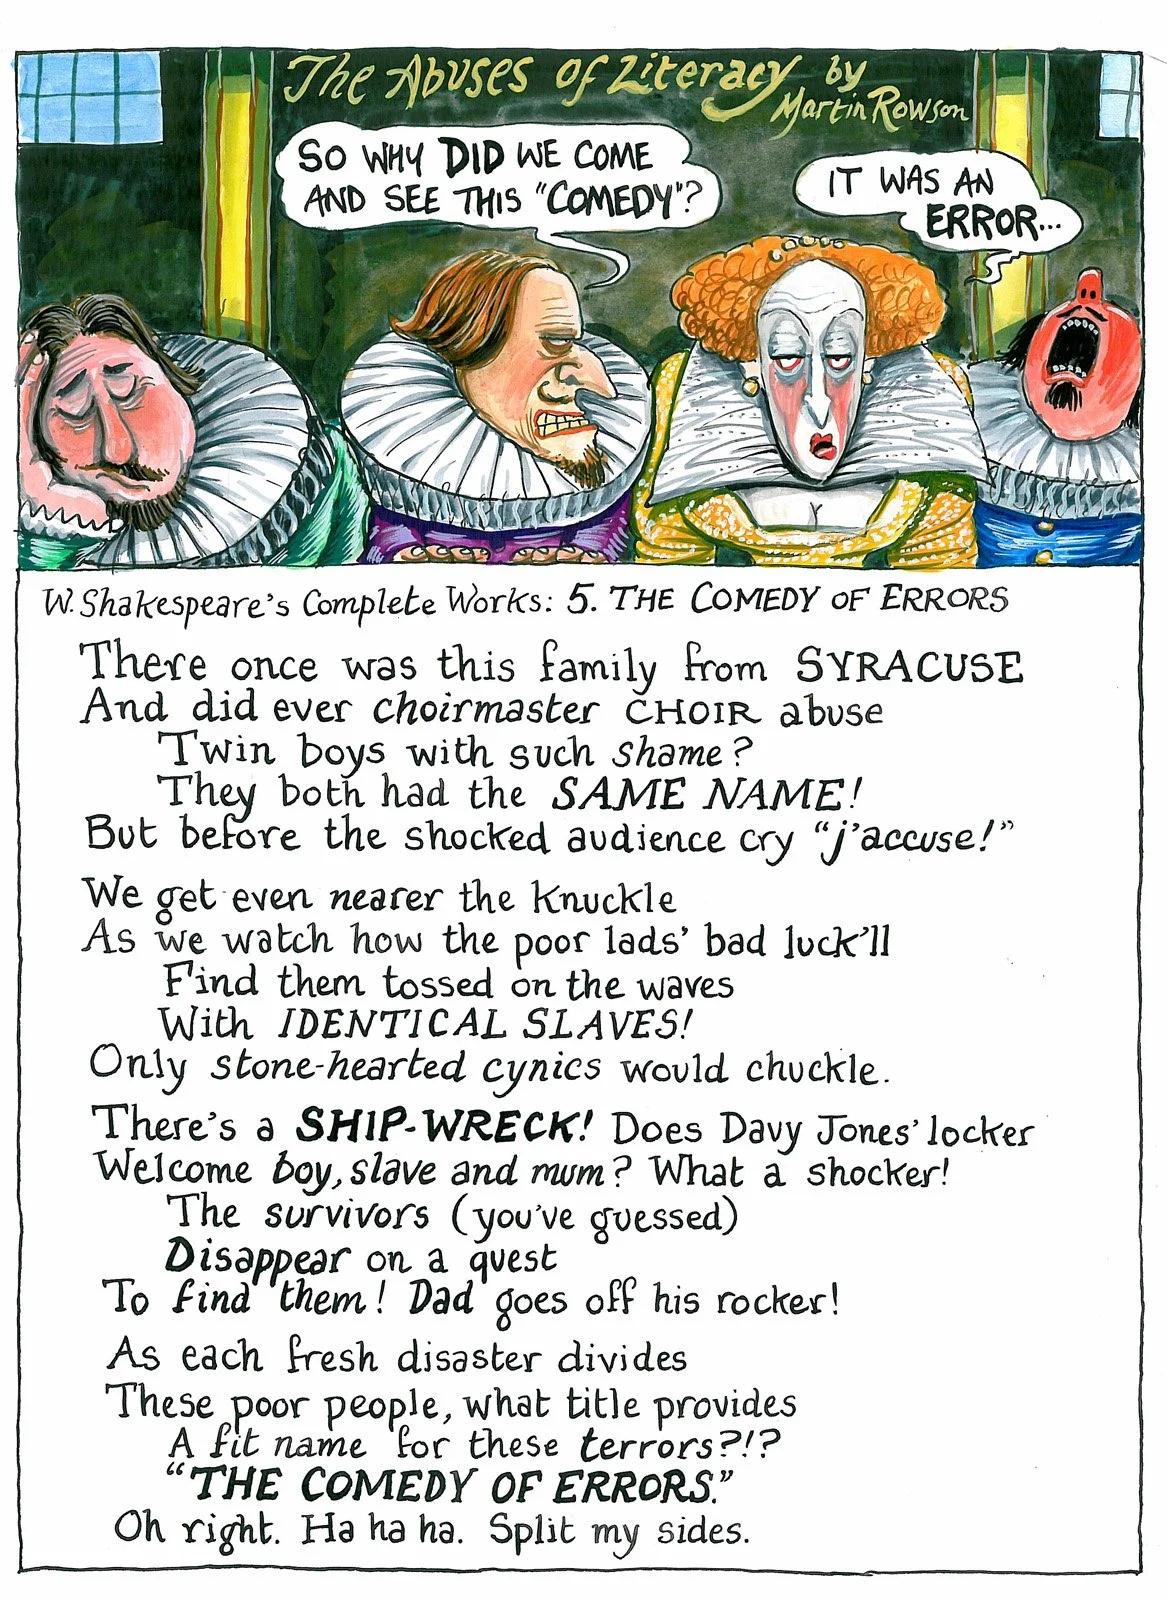 The Abuses of Literacy by
Martin Rowson
SO WHY DID WE COME
AND SEE THIS "COMEDY"?
IT WAS AN
ERROR...
W. Shakespeare's Complete Works: 5. THE COMEDY OF ERRORS
There once was this family from SYRACUSE
And did ever choirmaster CHOIR abuse
Twin boys with such shame?
They both had the SAME NAME!
But before the shocked audience cry "j'accuse!"
We get even nearer the knuckle
As we watch how the poor lads' bad luck'll
Find them tossed on the waves
With IDENTICAL SLAVES!
Only stone-hearted cynics would chuckle.
There's a SHIP-WRECK! Does Davy Jones' locker
Welcome boy, slave and mum? What a shocker!
The survivors (you've guessed)
Disappear on a quest
To find them! Dad goes off his rocker!
As each fresh disaster divides
These poor people, what title provides
A fit name for these terrors?!?
"THE COMEDY OF ERRORS."
Oh right. Ha ha ha. Split my sides.